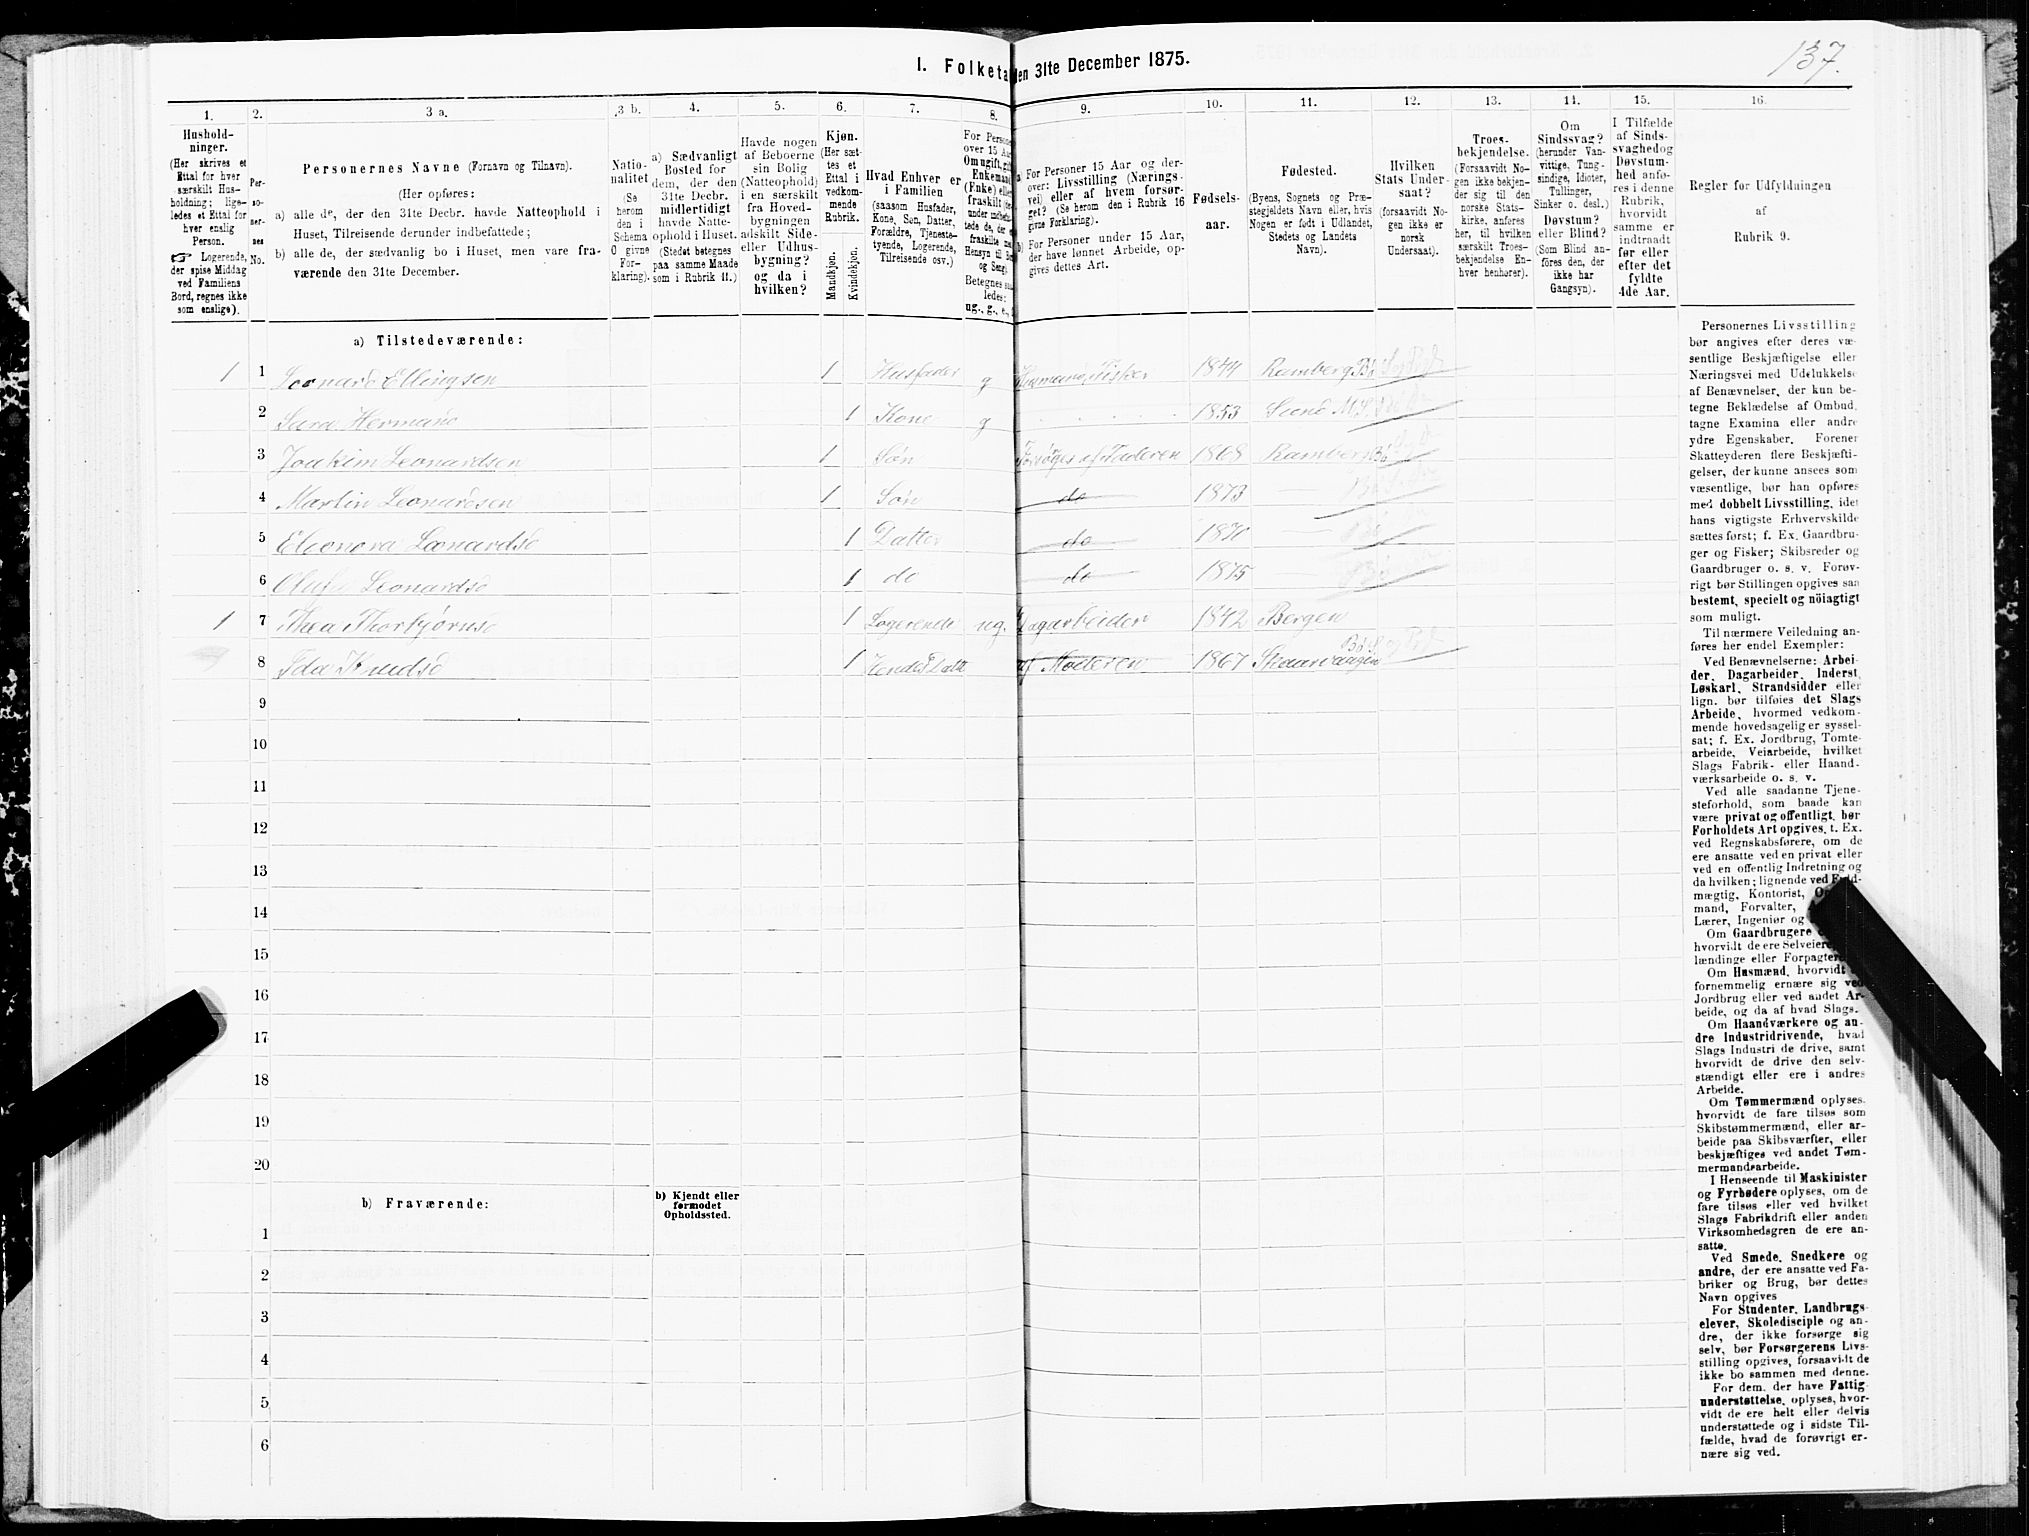 137.
I. Folketæ
den 31te December 1875.
1. 2. 3 a. 3 b. 4. 5. 6. 7. 8. 9. 10. 11. 12. 13. 14. 15. 16.
Hushold-
ninger.
(Her skrives et
Ettal for hver
særskilt Hus-
holdning; lige-
ledes et Ettal for
hver enslig
Person.
☞ Logerende,
der spise Middag
ved Familiens
Bord, regnes ikke
som enslige).
Per-
so-
ner-
nes
No.
Personernes Navne (Fornavn og Tilnavn).
(Her opføres:
a) alle de, der den 31te Decbr. havde Natteophold i
Huset, Tilreisende derunder indbefattede;
b) alle de, der sædvanlig bo i Huset, men vare fra-
værende den 31te December.
Natio-
nalitet
(Se
herom
den i
Schema
O givne
For-
klaring).
a) Sædvanligt
Bosted for
dem, der den
31te Decbr.
midlertidigt
havde Natte-
ophold i Huset.
(Stedet betegnes
paa samme Maade
som i Rubrik 11.)
Havde nogen
af Beboerne
sin Bolig
(Natteophold)
i en særskilt
fra Hoved-
bygningen
adskilt Side-
eller Udhus-
bygning?
og da i
hvilken?
Kjøn.
(Her sæt-
tes et
Ettal i
vedkom-
mende
Rubrik.
Mandkjøn.
Kvindekjøn.
Hvad Enhver er
i Familien
(saasom Husfader,
Kone, Søn, Datter,
Forældre, Tjeneste-
tyende, Logerende,
Tilreisende osv.)
For Persone
over 15 Aar
Om ugift, gift
Enkemand
(Enke) eller
fraskilt
Betegnes saa-
ledes:
ug., g., e.,
a) For Personer 15 Aar og der-
over: Livsstilling (Nærings-
vei) eller af hvem forsør-
get? (Se herom den i Rubrik 16
givne Forklaring).
b) For Personer under 15 Aar,
der have lønnet Arbeide, op-
gives dettes Art.
Fødsels-
aar.
Fødested.
(Byens, Sognets og Præ-
stegjeldets Navn eller, hvis
Nogen er født i Udlandet,
Stedets og Landets
Navn).
Hvilken
Stats Under-
saat?
(forsaavidt No-
gen ikke er
norsk
Undersaat).
Troes-
bekjendelse.
(Forsaavidt No-
gen ikke bekjen-
der sig til den
norske Stats-
kirke, anføres
her, til hvilken
særskilt Troes-
bekjendelse En-
hver henhører).
Om
Sindssvag?
(herunder Van-
vittige, Tung-
sindige, Idioter,
Tullinger,
Sinker o. desl.)
Døvstum?
eller Blind?
(Som Blind an-
føres den, der
ikke har
Gangsyn).
I Tilfælde
af Sinds-
svaghed og
Døvstum-
hed anfø-
res i denne
Rubrik,
hvorvidt
samme er
indtraadt
før eller
efter det
fyldte
4de Aar.
Regler for Udfyldningen
af
Rubrik 9.
a) Tilstedeværende:
1 1 Leonard Ellingsen 1 Husfader g Husmand, Fisker 1844 Ramberg
2 Sara Hermansd 1 Kone g 1853 Sund
3 Joakim Leonardsen 1 Søn Forsørges af Faderen 1868 Ramberg
4 Martin Leonardsen 1 Søn do 1873
5 Eleonora Leonardsd 1 Datter do 1870
6 Leonardsd 1 do do 1875
1 7 Thea Thorbjørnsd 1 Logerende ug. Dagarbeider 1842 Bergen
8 Ida Knudsd 1 Hendes Datt af Moderen 1867 Skaarvaagen
9
10
11
12
13
14
15
16
17
18
19
20
b) Fraværende:
b) Kjendt eller
formodet
Opholdssted.
1
2
3
4
5
6
Personernes Livsstilling
bør angives efter deres væ-
sentlige Beskjæftigelse eller
Næringsvei med Udelukkelse
af Benævnelser, der kun be-
tegne Beklædelse af Ombud,
tagne Examina eller andre
ydre Egenskaber. Forener
Skatteyderen flere Beskjæfti-
gelser, der kunne ansees som
væsentlige, bør han opføres
med dobbelt Livsstilling, idet
hans vigtigste Erhvervskilde
sættes først; f. Ex. Gaardbru-
ger og Fisker; Skibsreder og
Gaardbruger o. s. v. Forøv-
rigt bør Stillingen opgives saa
bestemt, specielt og nøiagtigt
som muligt.
Til nærmere Veiledning an-
føres her endel Exempler:
Ved Benævnelserne: Arbei-
der, Dagarbeider, Inderst,
Løskarl, Strandsidder eller
lign. bør tilføies det Slags
Arbeide, hvormed vedkom-
mende hovedsagelig er syssel-
sat; f. Ex. Jordbrug, Tomte-
arbeide, Veiarbeide, hvilket
Slags Fabrik- eller Haand-
værksarbeide o. s. v.
Ved alle saadanne Tjene-
steforhold, som baade kan
være privat og offentligt, bør
Forholdets Art opgives, t. Ex.
ved Regnskabsførere, om de
ere ansatte ved en privat eller
ved en offentlig Indretning og
da hvilken; lignende ved
mægtig, Kontorist,
mand, Forvalter,
Lærer, Ingeniør og
Om Gaardbrugere
hvorvidt de ere Selveiere,
lændinge eller Forpagtere.
Om Husmænd, hvorvidt
fornemmelig ernære sig ved
Jordbrug eller ved andet Ar-
beide, og da af hvad Slags.
Om Haandværkere og an-
dre Industridrivende, hvad
Slags Industri de drive, samt
hvorvidt de drive den selv-
stændigt eller ere i andres
Arbeide.
Om Tømmermænd oplyses,
hvorvidt de fare tilsøs som
Skibstømmermænd, eller ar-
beide paa Skibsværfter, eller
beskjæftiges ved andet Tøm-
mermandsarbeide.
I Henseende til Maskinister
og Fyrbødere oplyses, om de
fare tilsøs eller ved hvilket
Slags Fabrikdrift eller anden
Virksomhedsgren de ere an-
satte.
Ved Smede, Snedkere og
andre, der ere ansatte ved Fa-
briker og Brug, bør dettes
Navn opgives
For Studenter, Landbrugs-
elever, Skoledisciple og an-
dre, der ikke forsørge sig
selv, bør Forsørgerens Livs-
stilling opgives, forsaavidt de
ikke bo sammen med denne.
For dem, der have Fattig-
understøttelse, oplyses, hvor-
vidt de ere helt eller delvis
understøttede og i sidste Til-
fælde, hvad de forøvrigt er-
nære sig ved.